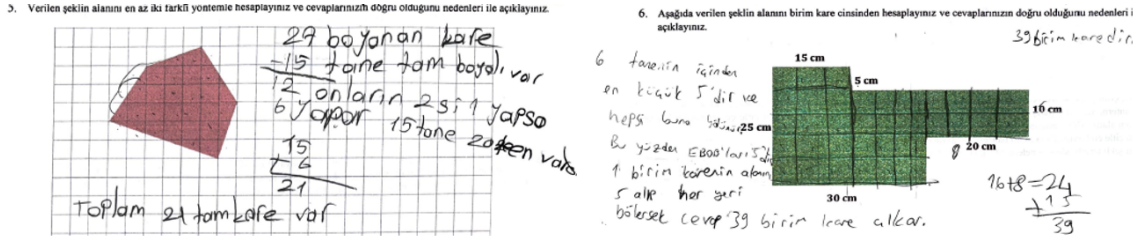 5. Verilen şeklin alanını en az iki farklı yöntemle hesaplayınız ve cevaplarınızın doğru olduğunu nedenleri ile açıklayınız.
27 boyanan kare
-15 tane tam boyalı var
12 onların 2 si 1 yapsa
6 yapar 15 tane zaten varo
15
+ 6
21
Toplam 21 tam kare var
6. Aşağıda verilen şeklin alanını birim kare cinsinden hesaplayınız ve cevaplarınızın doğru olduğunu nedenleri i
açıklayınız.
39 birim karedir.
6 tanenin içinden
en küçük 5'dir ve
hepsi buna
Bu yüzden EBOB'ları 5'dir
1 birim karenin alanını
5 alıp her yeri
bölersek cevap 39 birim kare çıkar.
15 cm
5 cm
10 cm
25 cm
20 cm
8
30 cm
16+8=24
+15
39